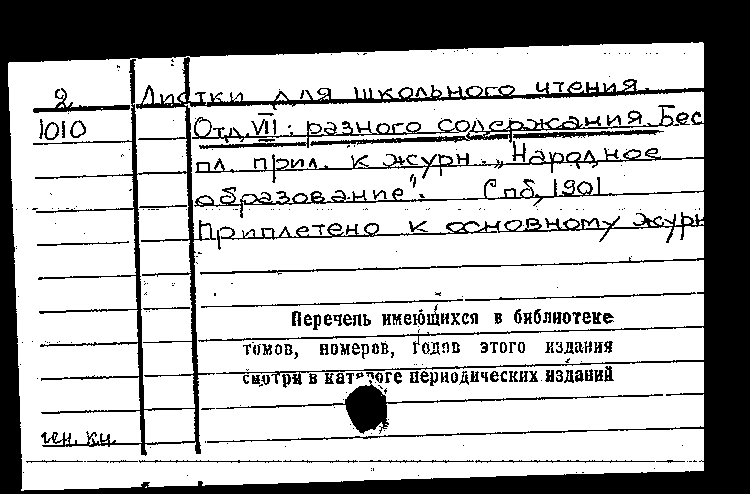 2 Листки для школьного чтения.
1010 Отд. VII: разного содержания. Бес
пл. прил. к журн. „Народное
образование". Спб, 1901
Приплетено к основному журн
Перечень имеющихся в библиотеке
томов, номеров, годов этого издания
смотри в каталоге периодических изданий
ген. кн.